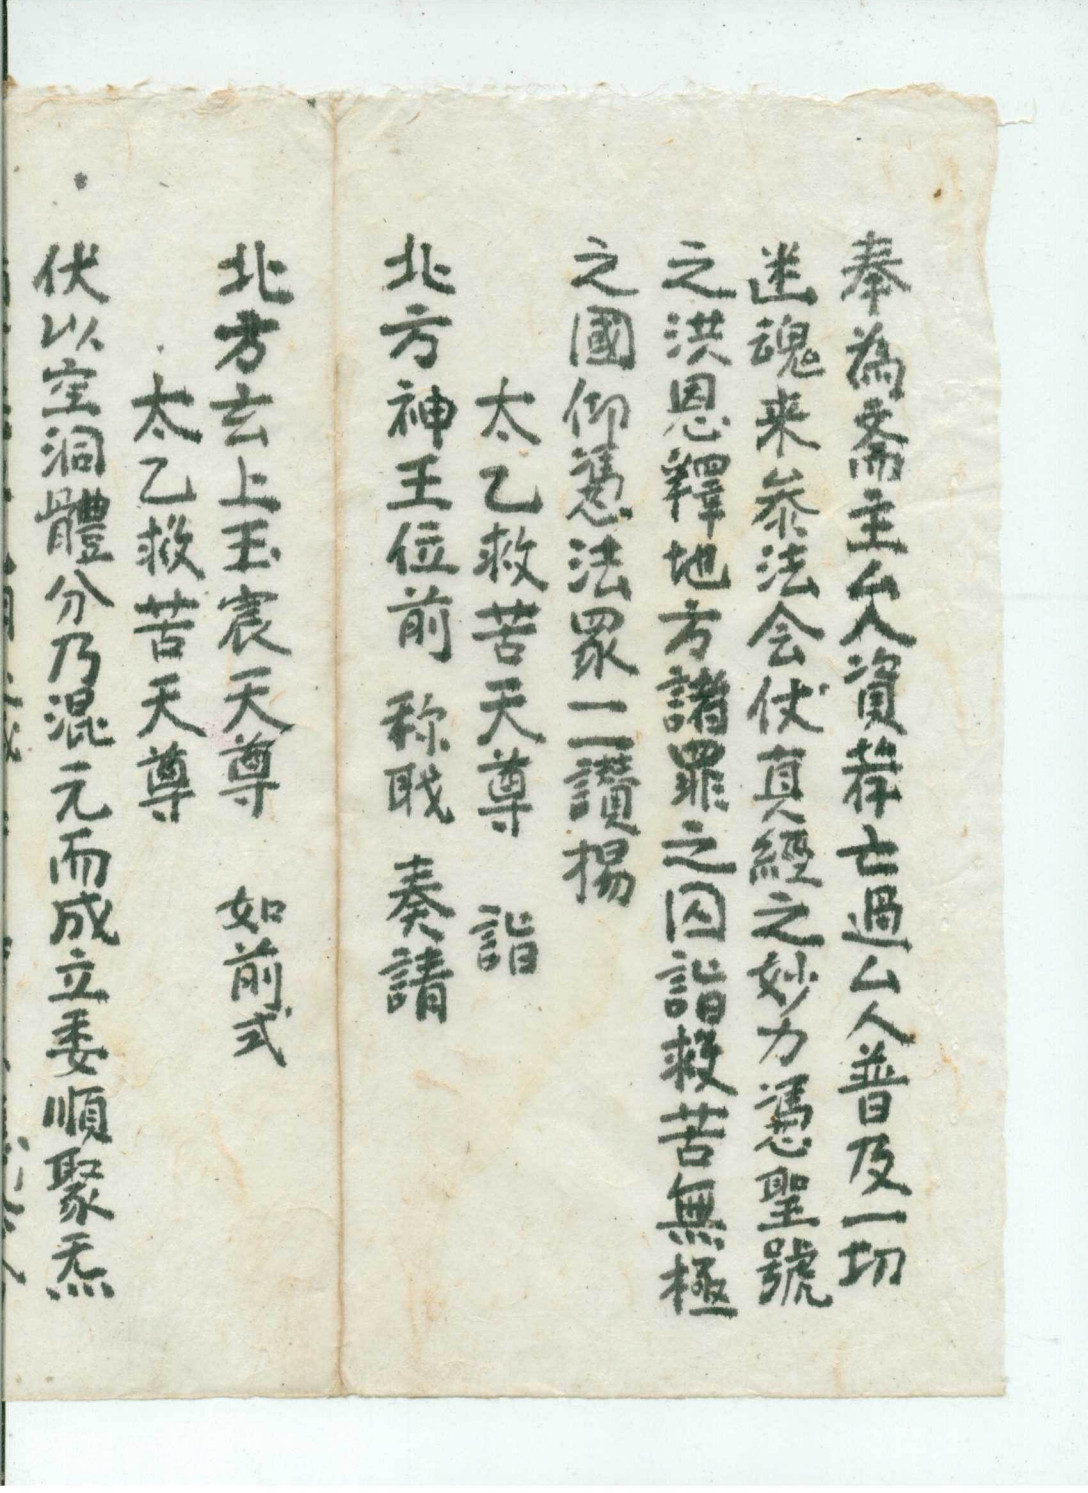 奉為斋主厶人資荐亡過厶人普及一切
迷魂来叅法会仗真經之妙力憑聖號
之洪恩釋地方諸罪之囚詣救苦無極
之國仰憑法眾一二讃揚
太乙救苦天尊 詣
北方神王位前 称職 奏請
北方玄上玉宸天尊 如前式
太乙救苦天尊
伏以空洞體分乃混元而成立委順聚炁